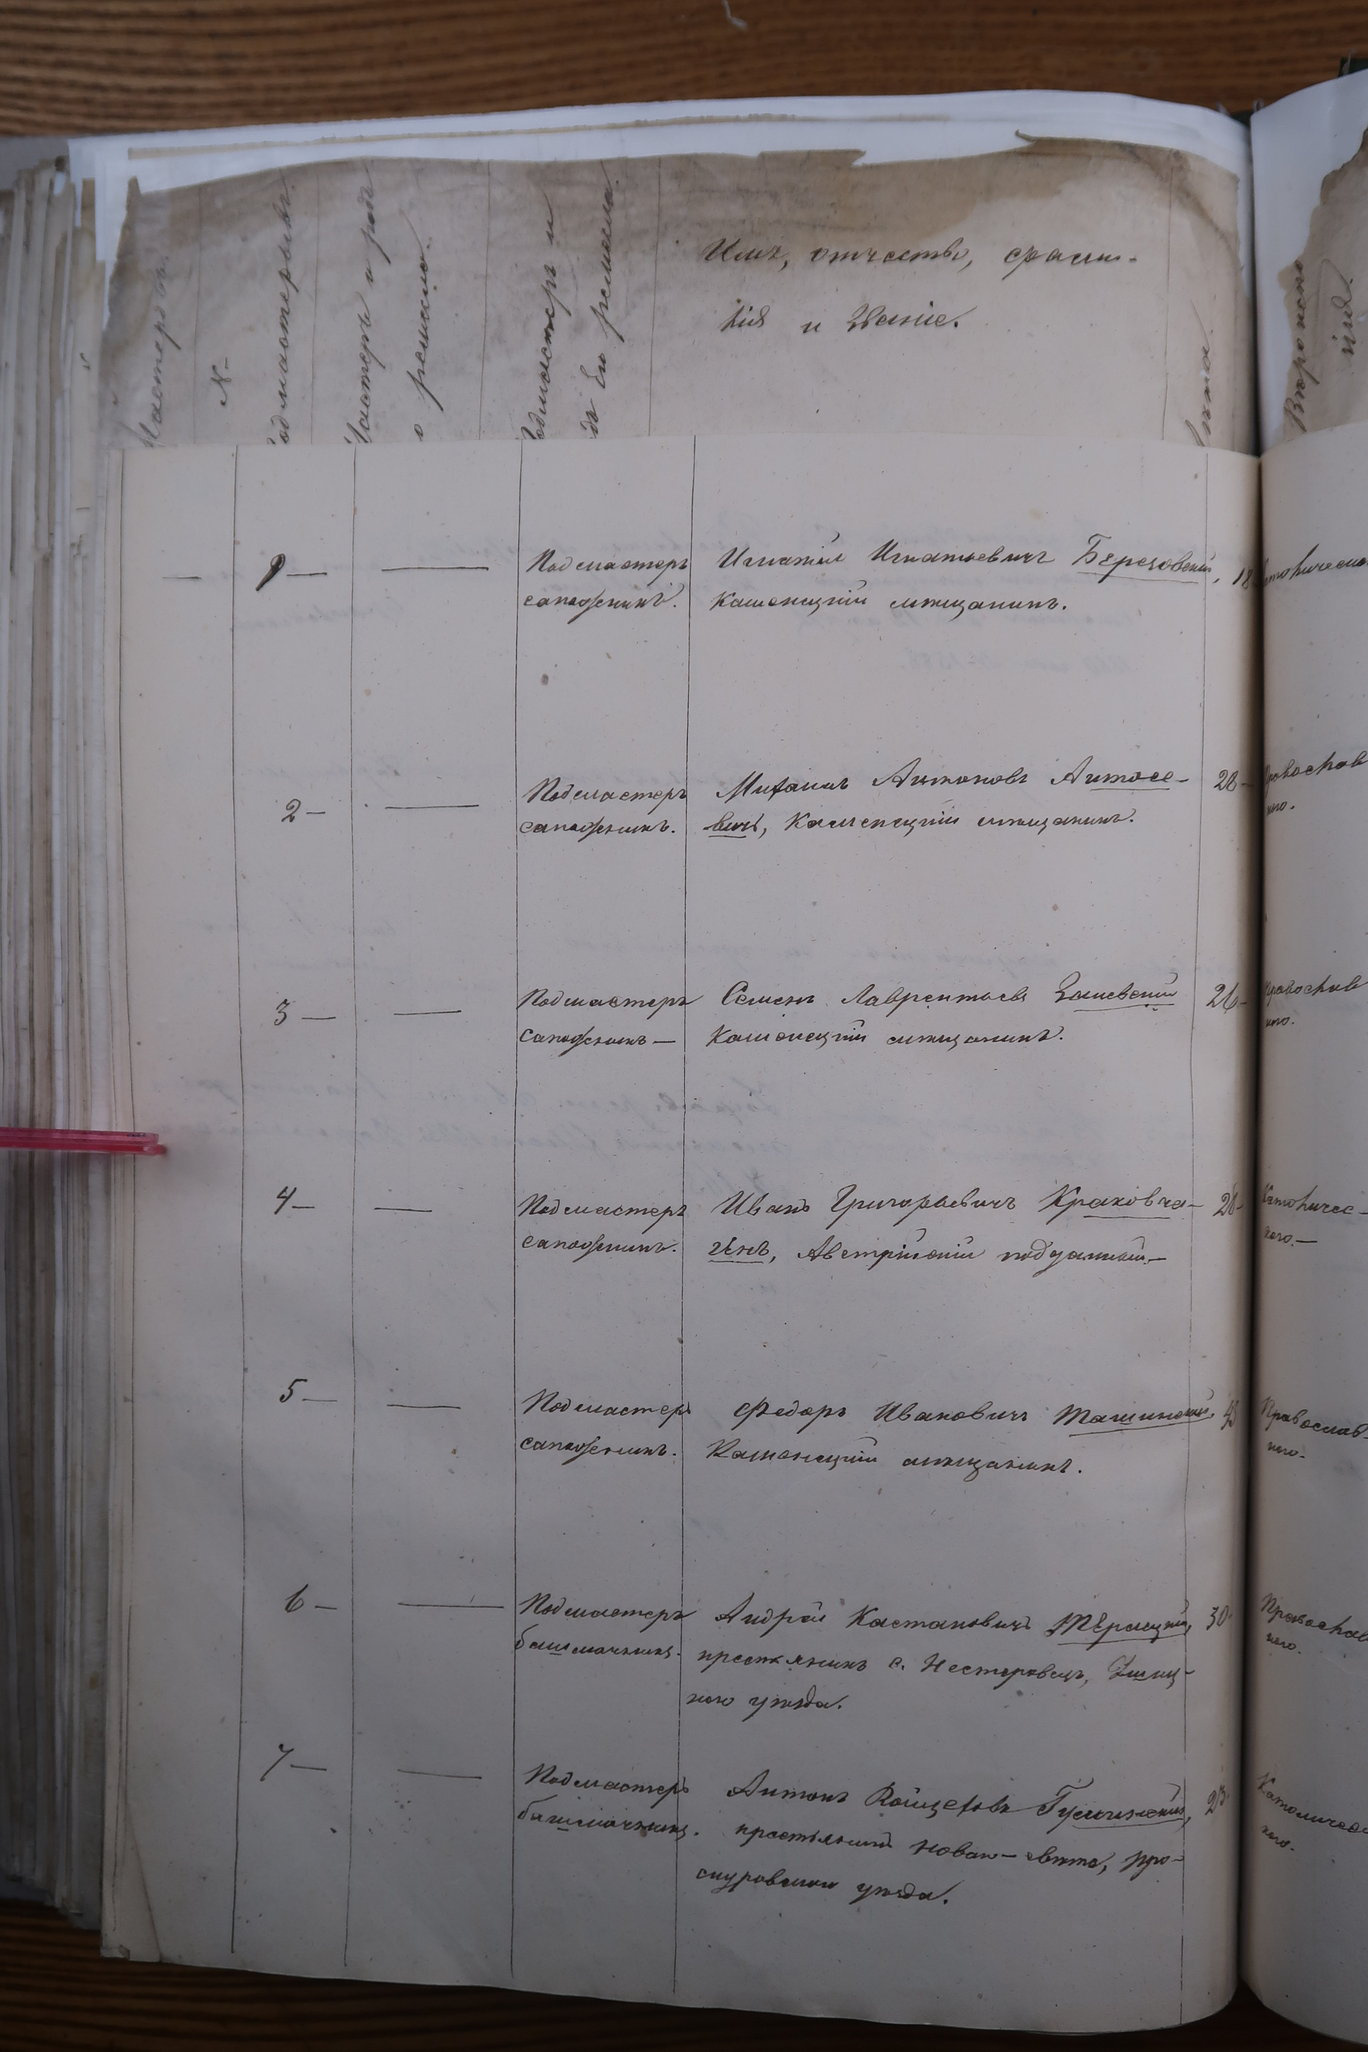 Мастеровъ.
№
Подмастерьевъ
Мастеръ и родъ
ремесла.
Подмастеръ и
родъ его ремесла.
Имя, отчество, фами-
лія и званіе.
Лѣта.
Вѣроиспо
1 —
Подмастеръ
сапожникъ.
Игнатій Игнатьевичъ Березовскій,
Каменецкій мѣщанинъ.
18
католическаго
2 —
Подмастеръ
сапожникъ.
Михаилъ Антоновъ Антосе-
вичъ, Каменецкій мѣщанинъ.
28 —
православ
наго.
3 —
Подмастеръ
Сапожникъ —
Семенъ Лаврентьевъ
Каменецкій мѣщанинъ.
26 —
православ
наго.
4 —
Подмастеръ
сапожникъ.
Иванъ Григорьевичъ Краковча-
Австрійскій подданный —
28 —
Католичес-
каго. —
5 —
Подмастеръ
сапожникъ.
Федоръ Ивановичъ
Каменецкій мѣщанинъ.
Православ-
наго.
6 —
Подмастеръ
башмачникъ.
Андрей Кастановичъ
крестьянинъ с. Нестеровецъ, Ушиц-
каго уѣзда.
30
Православ
наго.
7 —
Подмастеръ
башмачникъ.
Антонъ Войцеховъ
крестьянинъ Новаго-свѣта, Про-
скуровскаго уѣзда.
Католичес
каго.